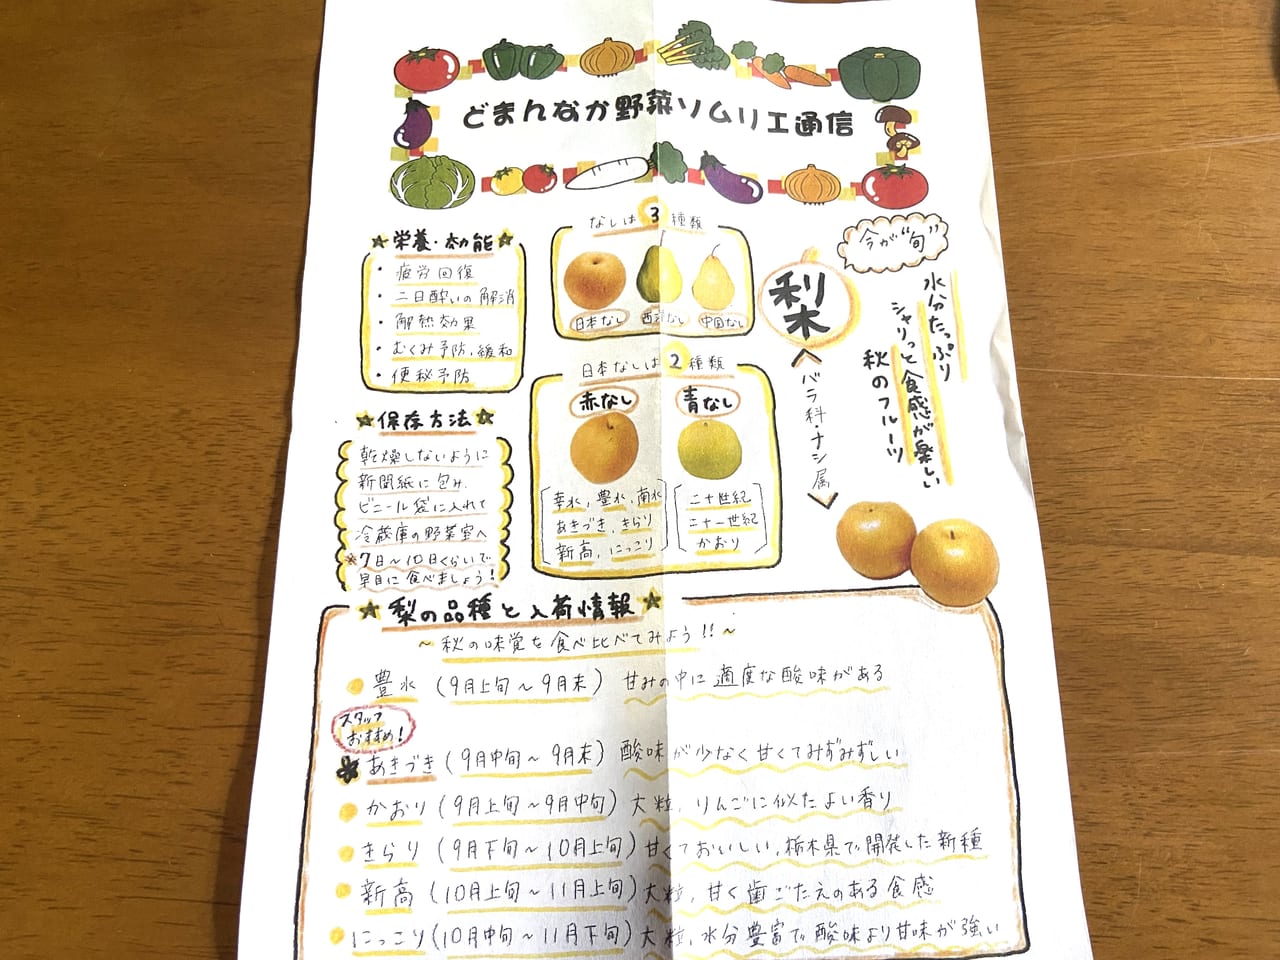 どまんなか野菜ソムリエ通信
☆栄養・効能☆
・疲労回復
・二日酔いの解消
・解熱効果
・むくみ予防、緩和
・便秘予防
なしは3種類
日本なし 西洋なし 中国なし
今が"旬"
梨
バラ科・ナシ属
水分たっぷり
シャリっと食感が楽しい
秋のフルーツ
日本なしは2種類
赤なし
幸水、豊水、南水
あきづき、きらり
新高、にっこり
青なし
二十世紀
二十一世紀
かおり
☆保存方法☆
乾燥しないように
新聞紙に包み、
ビニール袋に入れて
冷蔵庫の野菜室へ
※7日〜10日くらいで
早目に食べましょう!
☆梨の品種と入荷情報☆
〜秋の味覚を食べ比べてみよう!!〜
豊水(9月上旬〜9月末)甘みの中に適度な酸味がある
スタッフ
おすすめ!
あきづき(9月中旬〜9月末)酸味が少なく甘くてみずみずしい
かおり(9月上旬〜9月中旬)大粒、りんごに似たよい香り
きらり(9月下旬〜10月上旬)甘くておいしい、栃木県で開発した新種
新高(10月上旬〜11月上旬)大粒、甘く歯ごたえのある食感
にっこり(10月中旬〜11月下旬)大粒、水分豊富で酸味より甘味が強い